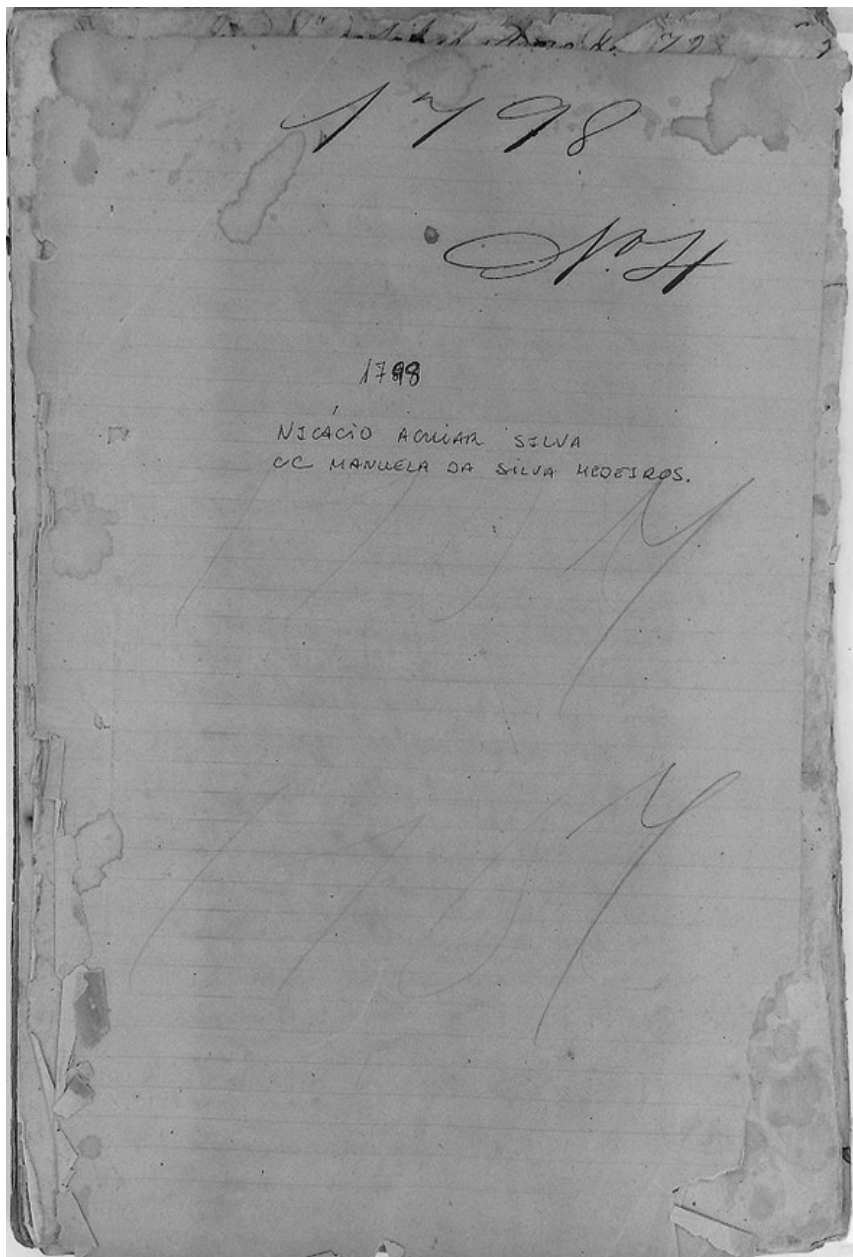 1798
Nº 4
1798
NICÁCIO AGUIAR SILVA
CC MANUELA DA SILVA MEDEIROS.